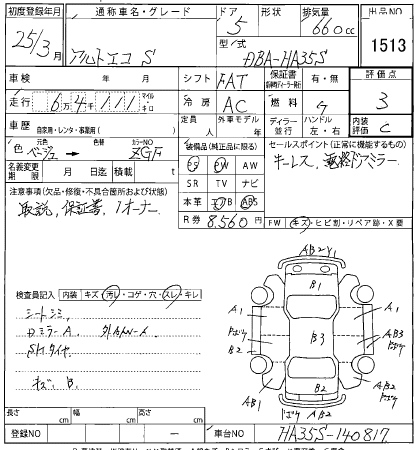 初度登録年月 通称車名・グレード ドア 形状 排気量 出品NO
25/3月 アルトエコ S 5 660cc 1513
型/式 DBA-HA35S
車検 年 月 シフト FAT 保証書 有・無 評価点
走行 6万4千111 マイル キロ 冷房 AC 燃料 3
車歴 自家用・レンタ・事業用( ) 定員 人 外車モデル 年 ディーラー 並行 ハンドル 左・右 内装 C
色 元色 ベージュ → 色替 カラーNO ZGF
名義変更期限 月 日 積載 t
装備品(純正品に限る) セールスポイント(正常に機能するもの)
PS PW AW キーレス、電格ドアミラー
SR TV ナビ
本革 エアB ABS
R券 8,560円
FW キズ・ヒビ割・リペア跡・X要
注意事項(欠品・修復・不具合箇所および状態)
取説、保証書、1オーナー
検査員記入 内装 キズ・汚レ・コゲ・穴・スレ・キレ
シートシミ
DミラーA
Sタイヤ
キズ、B
AB2Y
B1
A1 A1
B3 AB3
B2
B2 AB2
AB1 AB1
長さ cm 幅 cm 高さ cm
登録NO — 車台NO HA35S-140817